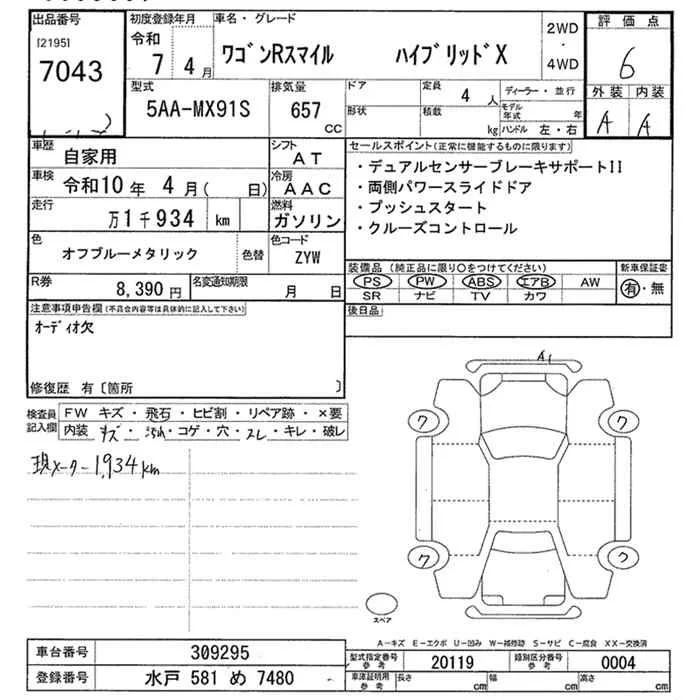 出品番号
[2195]
7043
初度登録年月
令和
7 4月
車名・グレード
ワゴンRスマイル ハイブリッドX
2WD
・
4WD
評価点
6
外装 内装
A A
型式
5AA-MX91S
排気量
657
cc
ドア
形状
定員
4 人
積載
kg
ディーラー・並行
モデル年式 年
ハンドル 左・右
車歴
自家用
シフト
AT
車検
令和10年 4月( 日)
冷房
AAC
走行
万1千934 km
燃料
ガソリン
色
オフブルーメタリック
色替
色コード
ZYW
R券
8,390 円
名変通知期限
月 日
セールスポイント(正常に機能するものに限ります)
・デュアルセンサーブレーキサポートII
・両側パワースライドドア
・プッシュスタート
・クルーズコントロール
装備品(純正品に限り○をつけてください)
PS PW ABS エアB AW
SR ナビ TV カワ
新車保証書
有・無
後日品
注意事項申告欄(不具合内容等は具体的に記入して下さい)
オーディオ欠
修復歴 有〔箇所 〕
検査員
記入欄
FW キズ・飛石・ヒビ割・リペア跡・×要
内装 キズ・汚れ・コゲ・穴・スレ・キレ・破レ
現メーター1,934km
A1
ワ
ワ
ワ
ワ
スペア
A−キズ E−エクボ U−凹み W−補修跡 S−サビ C−腐食 XX−交換済
車台番号
309295
登録番号
水戸 581 め 7480
型式指定番号
参考
20119
類別区分番号
参考
0004
車庫証明用
参考
長さ cm
幅 cm
高さ cm